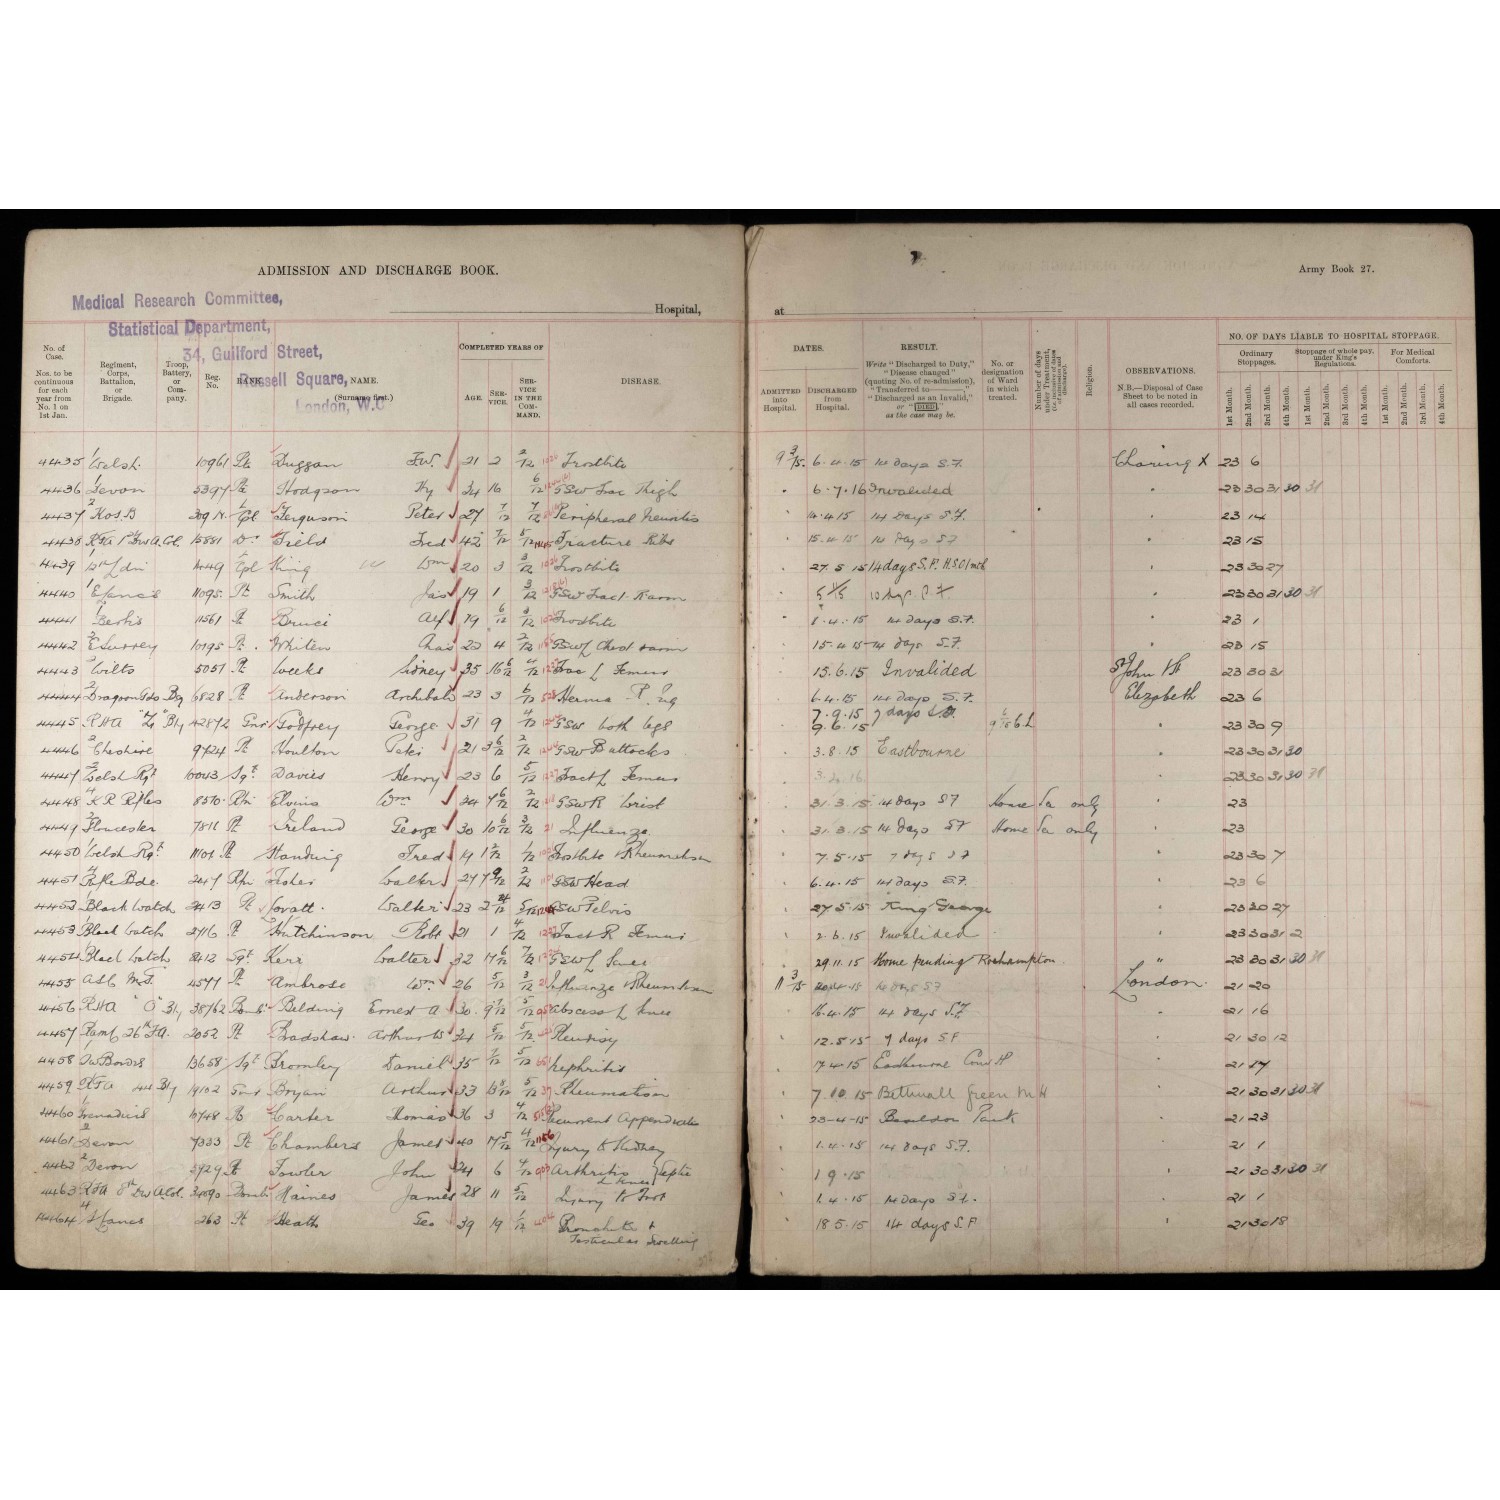 ADMISSION AND DISCHARGE BOOK.
Army Book 27.
Medical Research Committee,
Statistical Department,
34, Guilford Street,
Russell Square,
London, W.C
Hospital,
at
No. of Case.
Nos. to be continuous for each year from No. 1 on 1st Jan.
Regiment, Corps, Battalion, or Brigade.
Troop, Battery, or Company.
Reg. No.
RANK.
NAME.
(Surname first.)
COMPLETED YEARS OF
AGE.
SERVICE.
SERVICE IN THE COMMAND.
DISEASE.
DATES.
ADMITTED into Hospital.
DISCHARGED from Hospital.
RESULT.
Write "Discharged to Duty," "Disease changed" (quoting No. of re-admission), "Transferred to ———," "Discharged as an Invalid," or "DIED," as the case may be.
No. or designation of Ward in which treated.
Number of days under Treatment,
Religion.
OBSERVATIONS.
N.B.—Disposal of Case Sheet to be noted in all cases recorded.
NO. OF DAYS LIABLE TO HOSPITAL STOPPAGE.
Ordinary Stoppages.
Stoppage of whole pay, under King's Regulations.
For Medical Comforts.
1st Month. 2nd Month. 3rd Month. 4th Month. 1st Month. 2nd Month. 3rd Month. 4th Month. 1st Month. 2nd Month. 3rd Month. 4th Month.
4435 1 Welsh. 10961 Pte Duggan F.W. 21 2 2/12 Frostbite 9 3/15. 6.4.15 14 days S.F. Charing X 23 6
4436 1 Devon 5397 Pte Hodgson Hy 34 16 6/12 GSW Frac Thigh 6.7.16 Invalided 23 30 31 30 31
4437 2 KOSB Cpl Ferguson Peter 27 7/12 7/12 Peripheral Neuritis 14.4.15 14 days S.F. 23 14
4438 15881 Dr Field Fred 42 7/12 5/12 Fracture Ribs 15.4.15 14 days SF 23 15
4439 Cpl King Wm 20 3 3/12 Frostbite 27.5.15 14 days S.F. 23 30 27
4440 1 E Lancs 11095 Pt Smith Jas 19 1 3/12 GSW Fract R arm 23 30 31 30 31
4441 1 Berks 11561 Pt Bruce Alf 19 6/12 3/12 Frostbite 8.4.15 14 days S.F. 23 1
4442 2 E Surrey 10195 Pt Whiten Chas 20 4 2/12 15.4.15 14 days S.F. 23 15
4443 2 Wilts 5051 Pt Weeks Sidney 35 16 6/12 Frac L Femur 15.6.15 Invalided St John St 23 30 31
4444 2 Dragoon Gds 6828 Pt Anderson Archibald 23 3 6/12 Hernia R Ing 6.4.15 14 days S.F. Elizabeth 23 6
4445 RHA "Z" Bty 42872 Gnr Godfrey George 31 9 4/12 GSW both legs 7.9.15 7 days 9.6.15 23 30 9
4446 2 Cheshire 9724 Pt Houlton 21 3 6/12 2/12 GSW Buttocks 3.8.15 Eastbourne 23 30 31 30
4447 2 Welsh Rgt 10043 Sgt Davies Henry 23 6 5/12 Fract L Femur 23 30 31 30 31
4448 4 K R Rifles 8570 Rfn Elvins Wm 24 7 6/12 2/12 GSW R Wrist 31.3.15 14 days SF Home 23
4449 2 Gloucester 7811 Pt Ireland George 30 10 6/12 3/12 Influenza 31.3.15 14 days SF Home 23
4450 1 Welsh Rgt 11101 Pt Standing Fred 19 1 2/12 1/12 Frostbite & Rheumatism 7.5.15 7 days SF 23 30 7
4451 4 Rifle Bde. 2047 Rfn Fisher Walter 27 7 9/12 2/12 GSW Head 6.4.15 14 days S.F. 23 6
4452 1 Black Watch 2413 Pt Lovatt. Walter 23 2 5/12 GSW Pelvis 27.5.15 King George 23 30 27
4453 1 Black Watch 2716 Pt Hutchinson Robt 21 1 4/12 Fract R Femur 2.6.15 Invalided 23 30 31 2
4454 1 Black Watch 8412 Sgt Kerr Walter 32 17 6/12 7/12 GSW L Knee 29.11.15 Home pending Roehampton. " 23 30 31 30 31
4455 ASC M.T. 4577 Pt Ambrose Wm 26 5/12 3/12 Influenza & Rheumatism 11 3/15 14 days SF London 21 20
4456 RHA "O" Bty 38762 Bomb Belding Ernest A 30. 9 7/12 5/12 Abscess L knee 16.4.15 14 days S.F. 21 16
4457 26th FA. 2052 Pt Bradshaw Arthur W 34 5/12 5/12 Pleurisy 12.5.15 7 days SF 21 30 12
4458 13658 Sgt Bromley Daniel 35 7/12 5/12 Nephritis 17.4.15 Eastbourne 21 17
4459 RFA 44 Bty 19102 Gnr Bryan Arthur 33 13 11/12 5/12 Rheumatism 7.10.15 Bethnall Green M H 21 30 31 30 31
4460 Grenadiers 10748 Carter Thomas 36 3 4/12 Recurrent Appendicitis 23-4-15 21 23
4461 2 Devon 7333 Pt Chambers James 40 17 5/12 4/12 Injury R Kidney 1.4.15 14 days S.F. 21 1
4462 2 Devon 5929 Pt Fowler John 24 6 4/12 Arthritis Septic L knee 1 9.15 21 30 31 30 31
4463 RFA 34090 Bomb Haines James 28 11 5/12 Injury to Foot 1.4.15 14 days S.F. 21 1
4464 4 S Lancs 263 Pt Heath Geo 39 19 1/12 Bronchitis & Testicular Swelling 18.5.15 14 days S.F 21 30 18